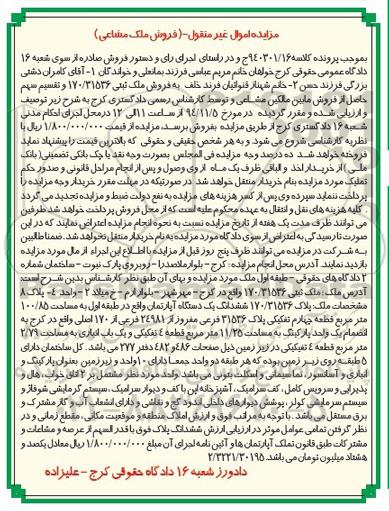 مزایده اموال غیر منقول-(فروش ملک مشاعی)
بموجب پرونده کلاسه ۹۴۰۳۰۱/۱۶ج و در راستای اجرای رای و دستور فروش صادره از سوی شعبه ۱۶
دادگاه عمومی حقوقی کرج خواهان خانم مریم عباسی فرزند بمانعلی و خواندگان ۱- آقای کامران دشتی
بزرگی فرزند حسن ۲- خانم شهناز قنواتیان فرزند خلف به فروش ملک ثبتی ۱۷۰/۳۱۵۳۶ و تقسیم سهم
حاصل از فروش مابین مالکین مشاعی و توسط کارشناس رسمی دادگستری کرج به شرح زیر توصیف
و ارزیابی شده و مقرر گردیده در مورخ ۹۴/۱۱/۵ از ساعت ۱۱ الی ۱۲ در محل اجرای احکام مدنی
شعبه ۱۶ دادگستری کرج از طریق مزایده بفروش برسد، مزایده از قیمت ۱/۸۰۰/۰۰۰/۰۰۰ ریال با
نظریه کارشناسی شروع می شود و به هر شخص حقیقی و حقوقی که بالاترین قیمت را پیشنهاد نماید
فروخته خواهد شد ده درصد وجه مزایده فی المجلس بصورت وجه نقد یا چک بانکی تضمینی( بانک
ملی ) از خریدار اخذ و الباقی ظرف یک ماه از وی وصول و پس از انجام مراحل قانونی و صدور حکم
تملیک مورد مزایده بنام خریدار منتقل خواهد شد در صورتیکه در مهلت مقرر خریدار وجه مزایده را
پرداخت ننماید سپرده وی پس از کسر هزینه های مزایده به نفع دولت ضبط و مزایده تجدید می گردد
. کلیه هزینه های نقل و انتقال به عهده محکوم علیه است که از محل فروش پرداخت خواهد شد طرفین
می توانند ظرف مدت یک هفته از تاریخ مزایده نسبت به نحوه انجام مزایده اعتراض نمایند که در این
صورت تا رسیدگی به اعتراض از سوی دادگاه مورد مزایده به نام خریدار منتقل نخواهد شد. ضمنا طالبین
به شرکت در مزایده می توانند ظرف پنج روز قبل از مزایده با اطلاع این اجراء از مال مورد مزایده
بازدید نمایند. آدرس محل انجام مزایده : کرج - بلوار ملاصدرا - روبروی پارک نبوت - ساختمان شماره
۲ دادگاه های حقوقی - طبقه اول ملک مورد مزایده و بهای آن طبق نظر کارشناس بدین شرح است:
آدرس ملک: ملک ثبتی ۱۷۰/۳۱۵۳۶ واقع در کرج - مهرشهر - بلوار ارم - خ میلاد ۲ - واحد ۴ - پلاک ۸
مشخصات ملک: پلاک ۱۷۰/۳۱۵۳۶ ششدانگ یک دستگاه آپارتمان واقع در طبقه اول به مساحت ۱۰۰/۸۵
متر مربع قطعه چهارم تفکیکی پلاک ۳۱۵۳۶ فرعی مفروز از ۲۴۹۸۱ فرعی از ۱۷۰ اصلی واقع در کرج به
انضمام یک واحد پارکینگ به مساحت ۱۱/۲۵ متر مربع قطعه ۴ تفکیکی و یک باب انباری به مساحت ۲/۷۹
متر مربع قطعه ۴ تفکیکی در زیر زمین ذیل صفحات ۴۸۶ و ۴۸۲ دفتر ۳۷۷ می باشد . کل ساختمان دارای
۵ طبقه روی زیر زمین بوده که هر طبقه دو واحد جمعا دارای ۱۰ واحد و زیر زمین بعنوان پارکینگ و
انباری و آسانسور، اسانسوری و اسکلت بتونی می باشد واحد مورد نظر مشتمل بر ۲ اتاق خواب، هال و
پذیرایی و سرویس کامل، کف سرامیک، آشپزخانه اپن با کف و دیوار سرامیک، سیستم گرمایش شوفاژ و
سیستم سرمایشی کولر، پوشش دیوارهای داخلی اندود گچ و نقاشی و دارای انشعابات آب و گاز مشترک و
برق مستقل می باشد . با توجه به مراتب فوق و ارزش املاک منطقه و موقعیت مکانی، مقطع زمانی و در
نظر گرفتن تمامی عوامل موثر در ارزیابی ارزش ششدانگ پلاک فوق با قدر السهم از عرصه و مشاعات و
مشترکات طبق قانون تملک آپارتمان ها و آئین نامه اجرای آن مبلغ ۱/۸۰۰/۰۰۰/۰۰۰ ریال معادل یکصد و
هشتاد میلیون تومان می باشد. ۲/۳۲۲۱/۳۰۱۹۵
دادورز شعبه ۱۶ دادگاه حقوقی کرج - علیزاده